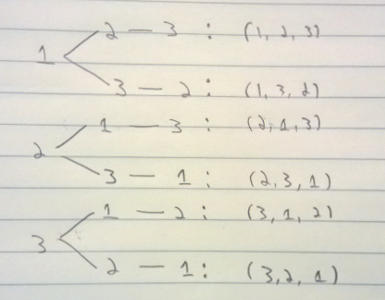 2 — 3 : (1, 2, 3)
1
3 — 2 : (1, 3, 2)
1 — 3 : (2, 1, 3)
2
3 — 1 : (2, 3, 1)
1 — 2 : (3, 1, 2)
3
2 — 1 : (3, 2, 1)